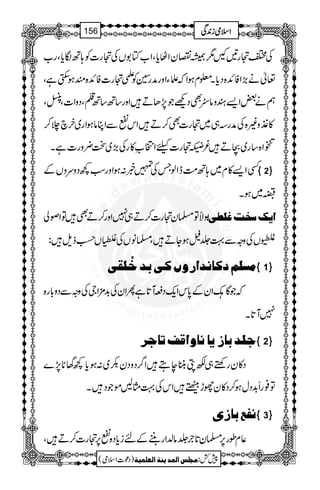 اسلامی زندگی
156
یکی مختلف تجارتیں کیں مگر ہمیشہ نقصان اٹھایا، اب کتابوں کی تجارت کو ہاتھ لگایا، رب
تعالیٰ نے بڑا فائدہ دیا۔ معلوم ہوا کہ علماء اور مدرسین کو علمی تجارت فائدہ مند ہوسکتی ہے،
ہم نے بعض ایسے ہندو ماسٹر بھی دیکھے جو پڑھاتے ہیں اور ساتھ ساتھ قلم، دوات، پنسل،
کاغذ وغیرہ کی مدرسہ ہی میں تجارت بھی کرتے ہیں اس نفع سے اپنا ماہوار خرچ چلا کر
تنخواہ ساری بچاتے ہیں غرضیکہ تجارت کیلئے انتخاب کار کی بڑی سخت ضرورت ہے۔
{2} کسی ایسے کام میں ہاتھ مت ڈالو جس کی تمہیں خبر نہ ہو اور سب کچھ دوسروں کے
قبضہ میں ہو۔
ایک سخت غلطی اولاً تو مسلمان تجارت کرتے ہی نہیں اور کرتے بھی ہیں تو اصولی
غلطیوں کی وجہ سے بہت جلد فیل ہو جاتے ہیں، مسلمانوں کی غلطیاں حسب ذیل ہیں:
{1} مسلم دکانداروں کی بد خُلقی
کہ جو گاہک ان کے پاس ایک دفعہ آتا ہے پھر ان کی بدمزاجی کی وجہ سے دوبارہ
نہیں آتا۔
{2} جلد باز یا ناواقف تاجر
دکان رکھتے ہی لکھ پتی بننا چاہتے ہیں اگر دو دن بکری نہ ہو یا کچھ گھاٹا پڑے
تو فوراً بددل ہوکر دکان چھوڑ بیٹھتے ہیں اس کی بہت مثالیں موجود ہیں۔
{3} نفع بازی
عام طور پر مسلمان تاجر جلد مالدار بننے کے لئے زیادہ نفع پر تجارت کرتے ہیں،
پیش کش: مجلس المدینۃ العلمیۃ (دعوتِ اسلامی)